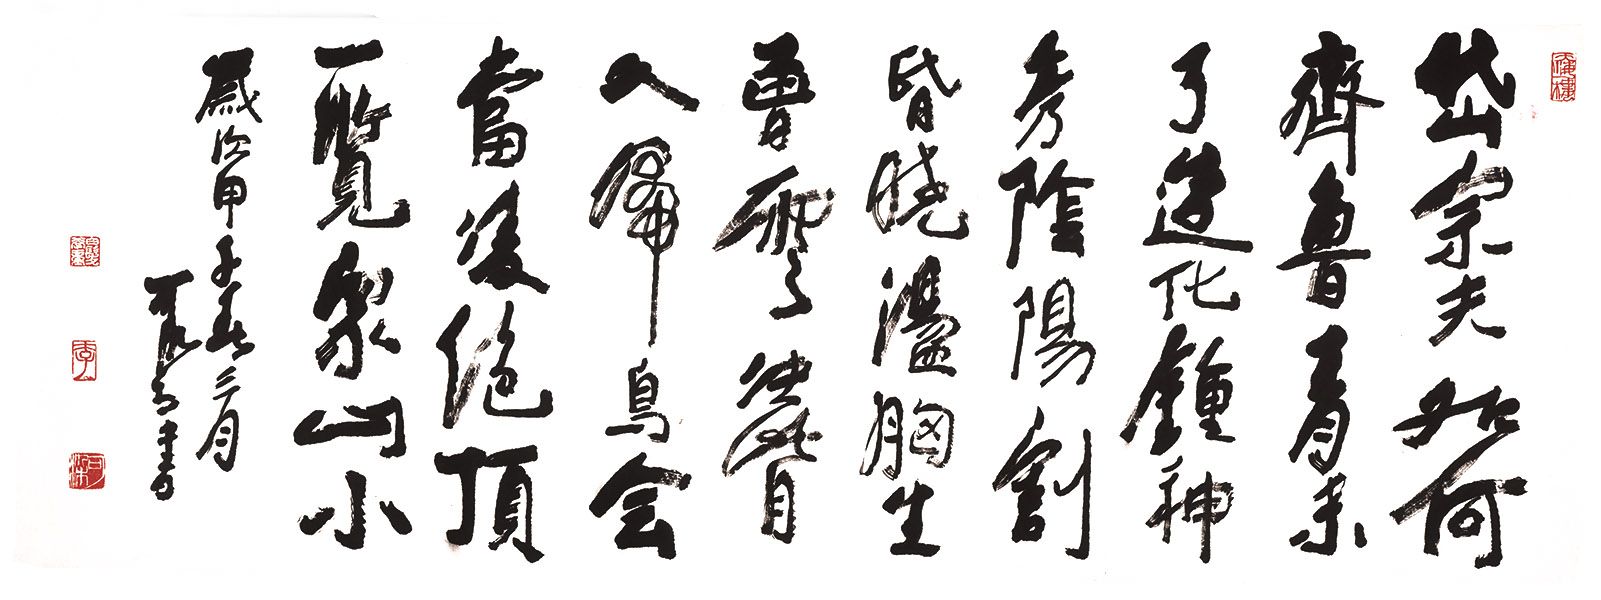 岱宗夫如何
齊魯青未
了造化鍾神
秀陰陽割
昏曉盪胸生
曾雲決眥
入歸鳥会
當凌絕頂
一覽眾山小
歲次甲子春三月
可染書
李
可染